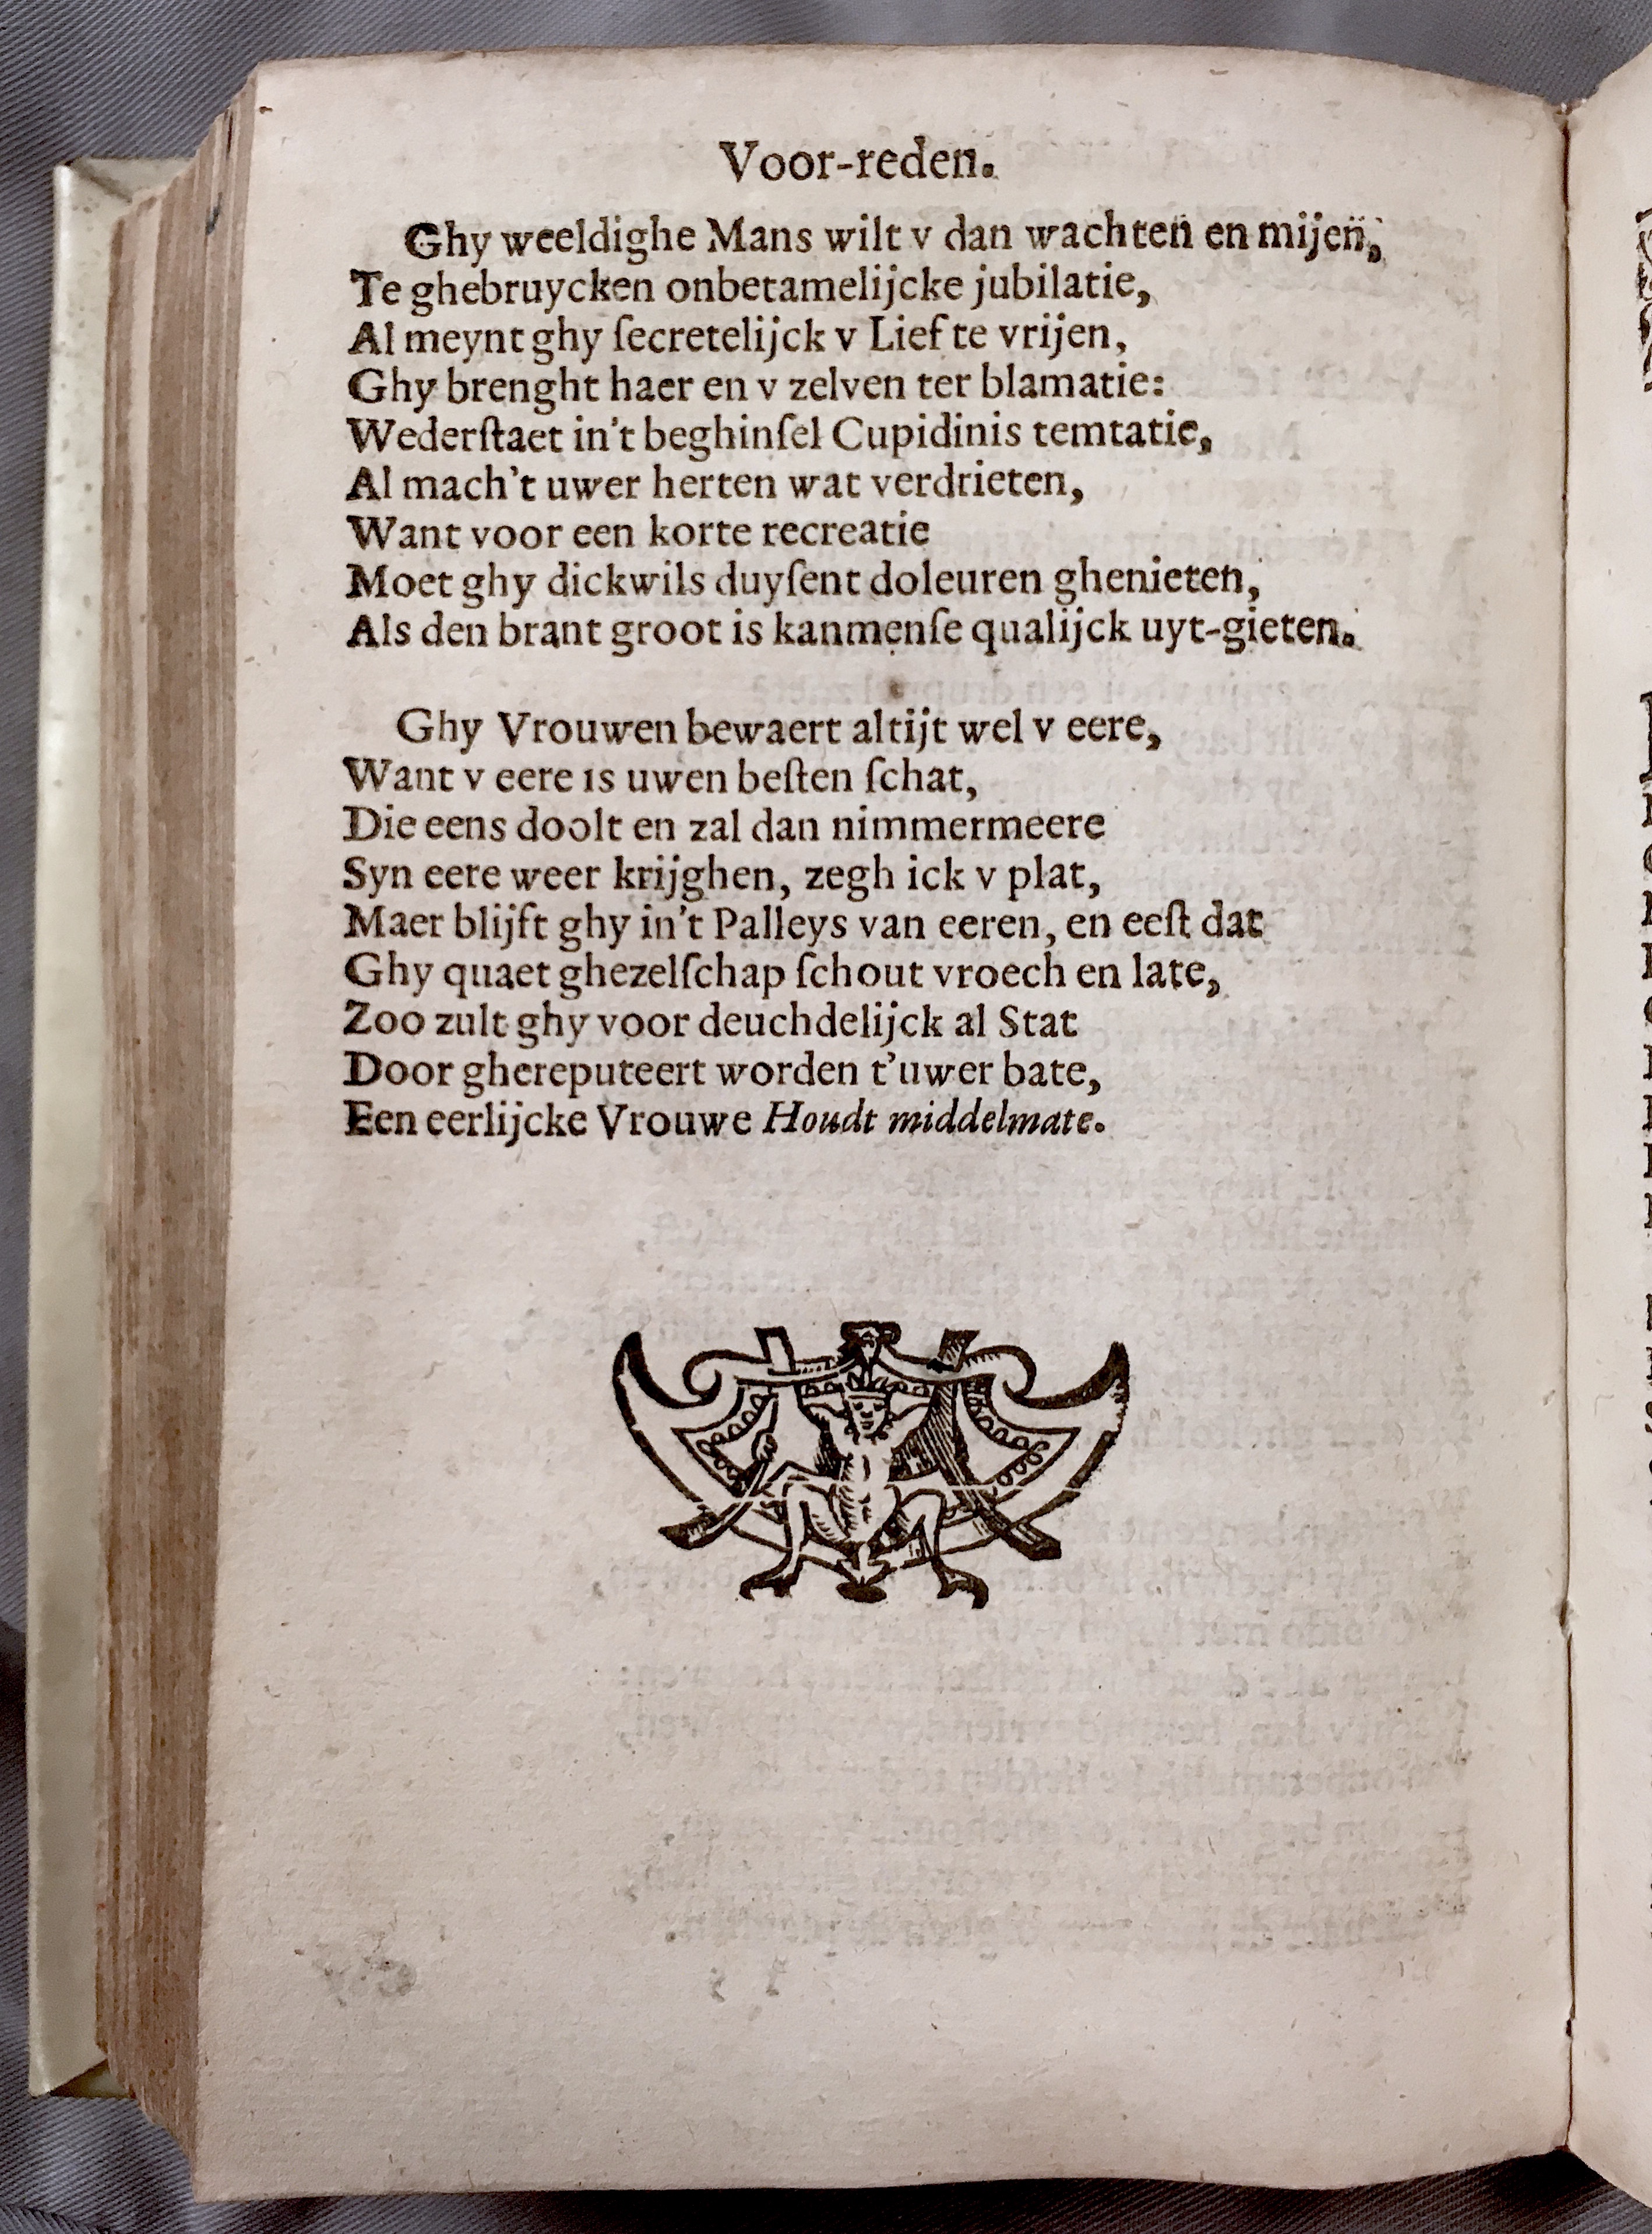 Voor-reden.
Ghy weeldighe Mans wilt v dan wachten en mijen,
Te ghebruycken onbetamelijcke jubilatie,
Al meynt ghy ſecretelijck v Lief te vrijen,
Ghy brenght haer en v zelven ter blamatie:
Wederſtaet in't beghinſel Cupidinis temtatie,
Al mach't uwer herten wat verdrieten,
Want voor een korte recreatie
Moet ghy dickwils duyſent doleuren ghenieten,
Als den brant groot is kanmenſe qualijck uyt-gieten.
Ghy Vrouwen bewaert altijt wel v eere,
Want v eere is uwen beſten ſchat,
Die eens doolt en zal dan nimmermeere
Syn eere weer krijghen, zegh ick v plat,
Maer blijft ghy in't Palleys van eeren, en eeſt dat
Ghy quaet ghezelſchap ſchout vroech en late,
Zoo zult ghy voor deuchdelijck al Stat
Door ghereputeert worden t'uwer bate,
Een eerlijcke Vrouwe Houdt middelmate.